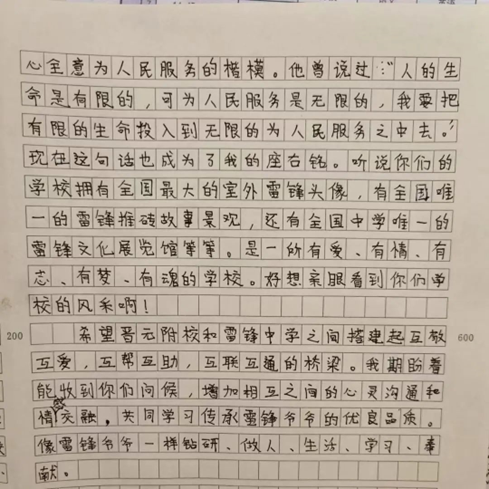 心全意为人民服务的楷模。他曾说过:"人的生
命是有限的,可为人民服务是无限的,我要把
有限的生命投入到无限的为人民服务之中去。"
现在这句话也成为了我的座右铭。听说你们的
学校拥有全国最大的室外雷锋头像,有全国唯
一的雷锋推砖故事景观,还有全国中学唯一的
雷锋文化展览馆等等。是一所有爱、有情、有
志、有梦、有魂的学校。好想亲眼看到你们学
校的风采啊!
200 希望晋元附校和雷锋中学之间搭建起互敬 600
互爱,互帮互助,互联互通的桥梁。我期盼着
能收到你们问候,增加相互之间的心灵沟通和
情感交融,共同学习传承雷锋爷爷的优良品质。
像雷锋爷爷一样钻研、做人、生活、学习、奉
献。